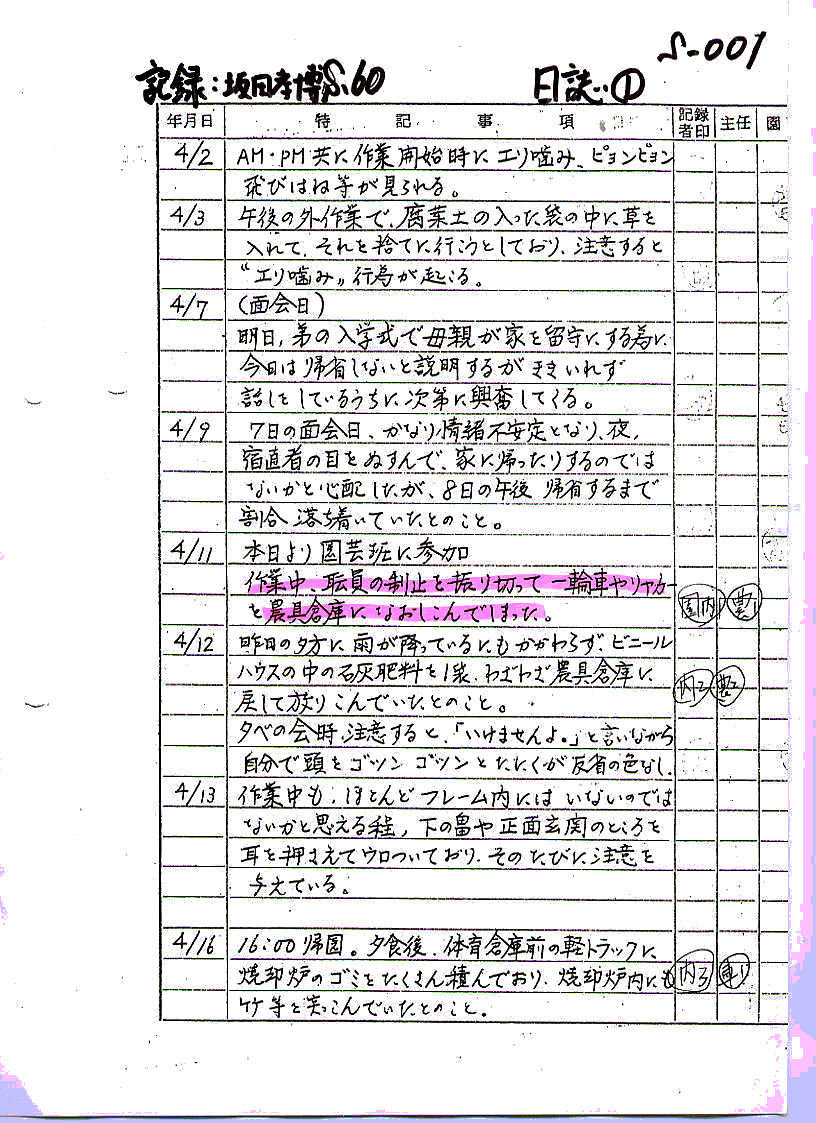 S-001
記録:坂田孝博S.60 日誌①
年月日 特記事項 記録者印 主任 園
4/2 AM・PM共に作業開始時にエリ噛み、ピョンピョン
飛びはね等が見られる。
4/3 午後の外作業で、腐葉土の入った袋の中に草を
入れて、それを捨てに行こうとしており、注意すると
“エリ噛み„行為が起こる。
4/7 (面会日)
明日、弟の入学式で母親が家を留守にする為に
今日は帰省しないと説明するがききいれず
話しをしているうちに次第に興奮してくる。
4/9 7日の面会日、かなり情緒不安定となり、夜、
宿直者の目をぬすんで、家に帰ったりするのでは
ないかと心配したが、8日の午後 帰省するまで
割合 落ち着いていたとのこと。
4/11 本日より園芸班に参加
作業中、職員の制止を振り切って一輪車やリヤカー
を農具倉庫になおしこんでしまった。
4/12 昨日の夕方に雨が降っているにもかかわらず、ビニール
ハウスの中の石灰肥料を1袋、わざわざ農具倉庫に
戻して放りこんでいたとのこと。
夕べの会時、注意すると、「いけませんよ。」と言いながら
自分で頭をゴツン ゴツンとたたくが反省の色なし。
4/13 作業中も、ほとんどフレーム内にはいないのでは
ないかと思える程、下の畠や正面玄関のところを
耳を押さえてウロついており、そのたびに注意を
与えている。
4/16 16:00帰園。夕食後、体育倉庫前の軽トラックに、
焼却炉のゴミをたくさん積んでおり、焼却炉内にも
竹等を突っこんでいたとのこと。